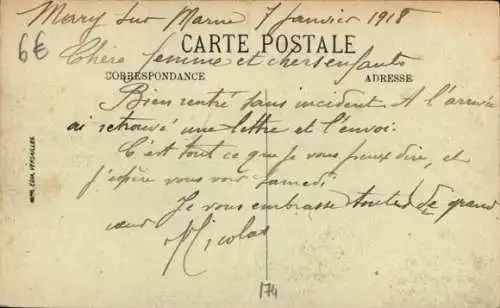 Mary sur Marne 7 Janvier 1918
6€
CARTE POSTALE
Chère femme et chers enfants
CORRESPONDANCE ADRESSE
Bien rentré sans incident A l'arrivée
ai retrouvé une lettre et l'envoi.
C'est tout ce que je vous peux dire, et
j'espère vous voir samedi
Je vous embrasse toutes de grand
cœur
Nicolas
174